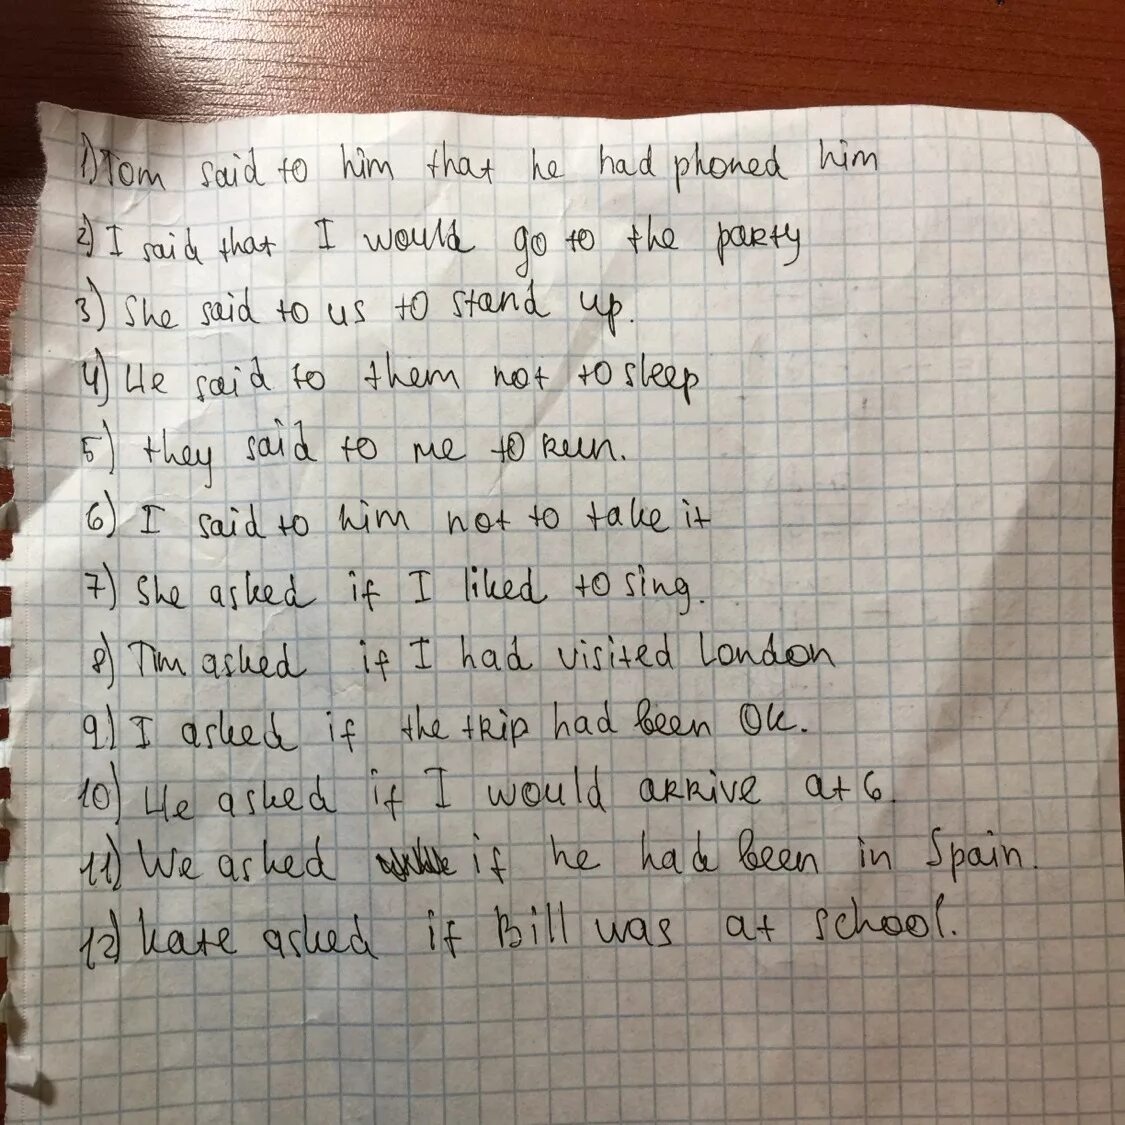 1) Tom said to him that he had phoned him
2) I said that I would go to the party
3) She said to us to stand up.
4) He said to them not to sleep
5) they said to me to run.
6) I said to him not to take it
7) She asked if I liked to sing.
8) Tim asked if I had visited London
9) I asked if the trip had been Ok.
10) He asked if I would arrive at 6.
11) We asked if he had been in Spain.
12) Kate asked if Bill was at school.